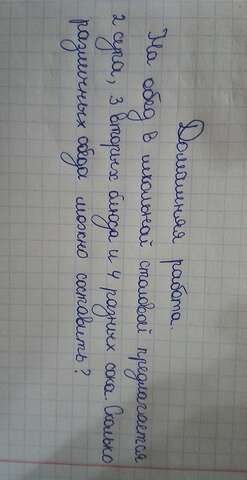 Домашняя работа.
На обед в школьной столовой предлагается
2 супа, 3 вторых блюда и 4 разных сока. Сколько
различных обеда можно составить?